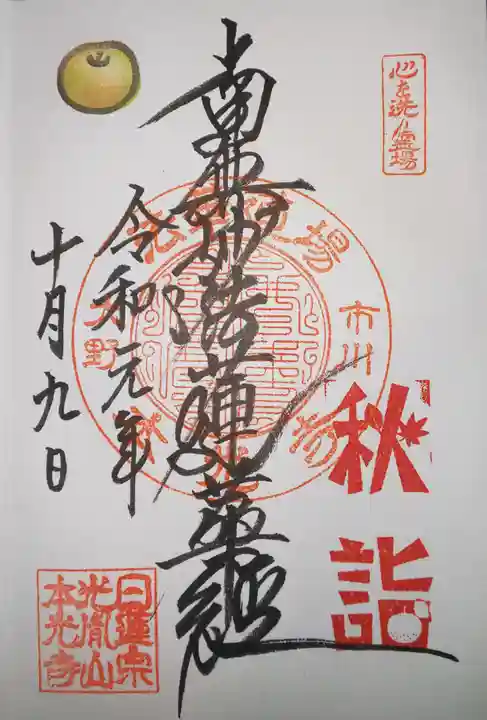 心を洗う霊場
南無妙法蓮華経
秋詣
令和元年
十月九日
市川
大野
日蓮宗
光胤山
本光寺